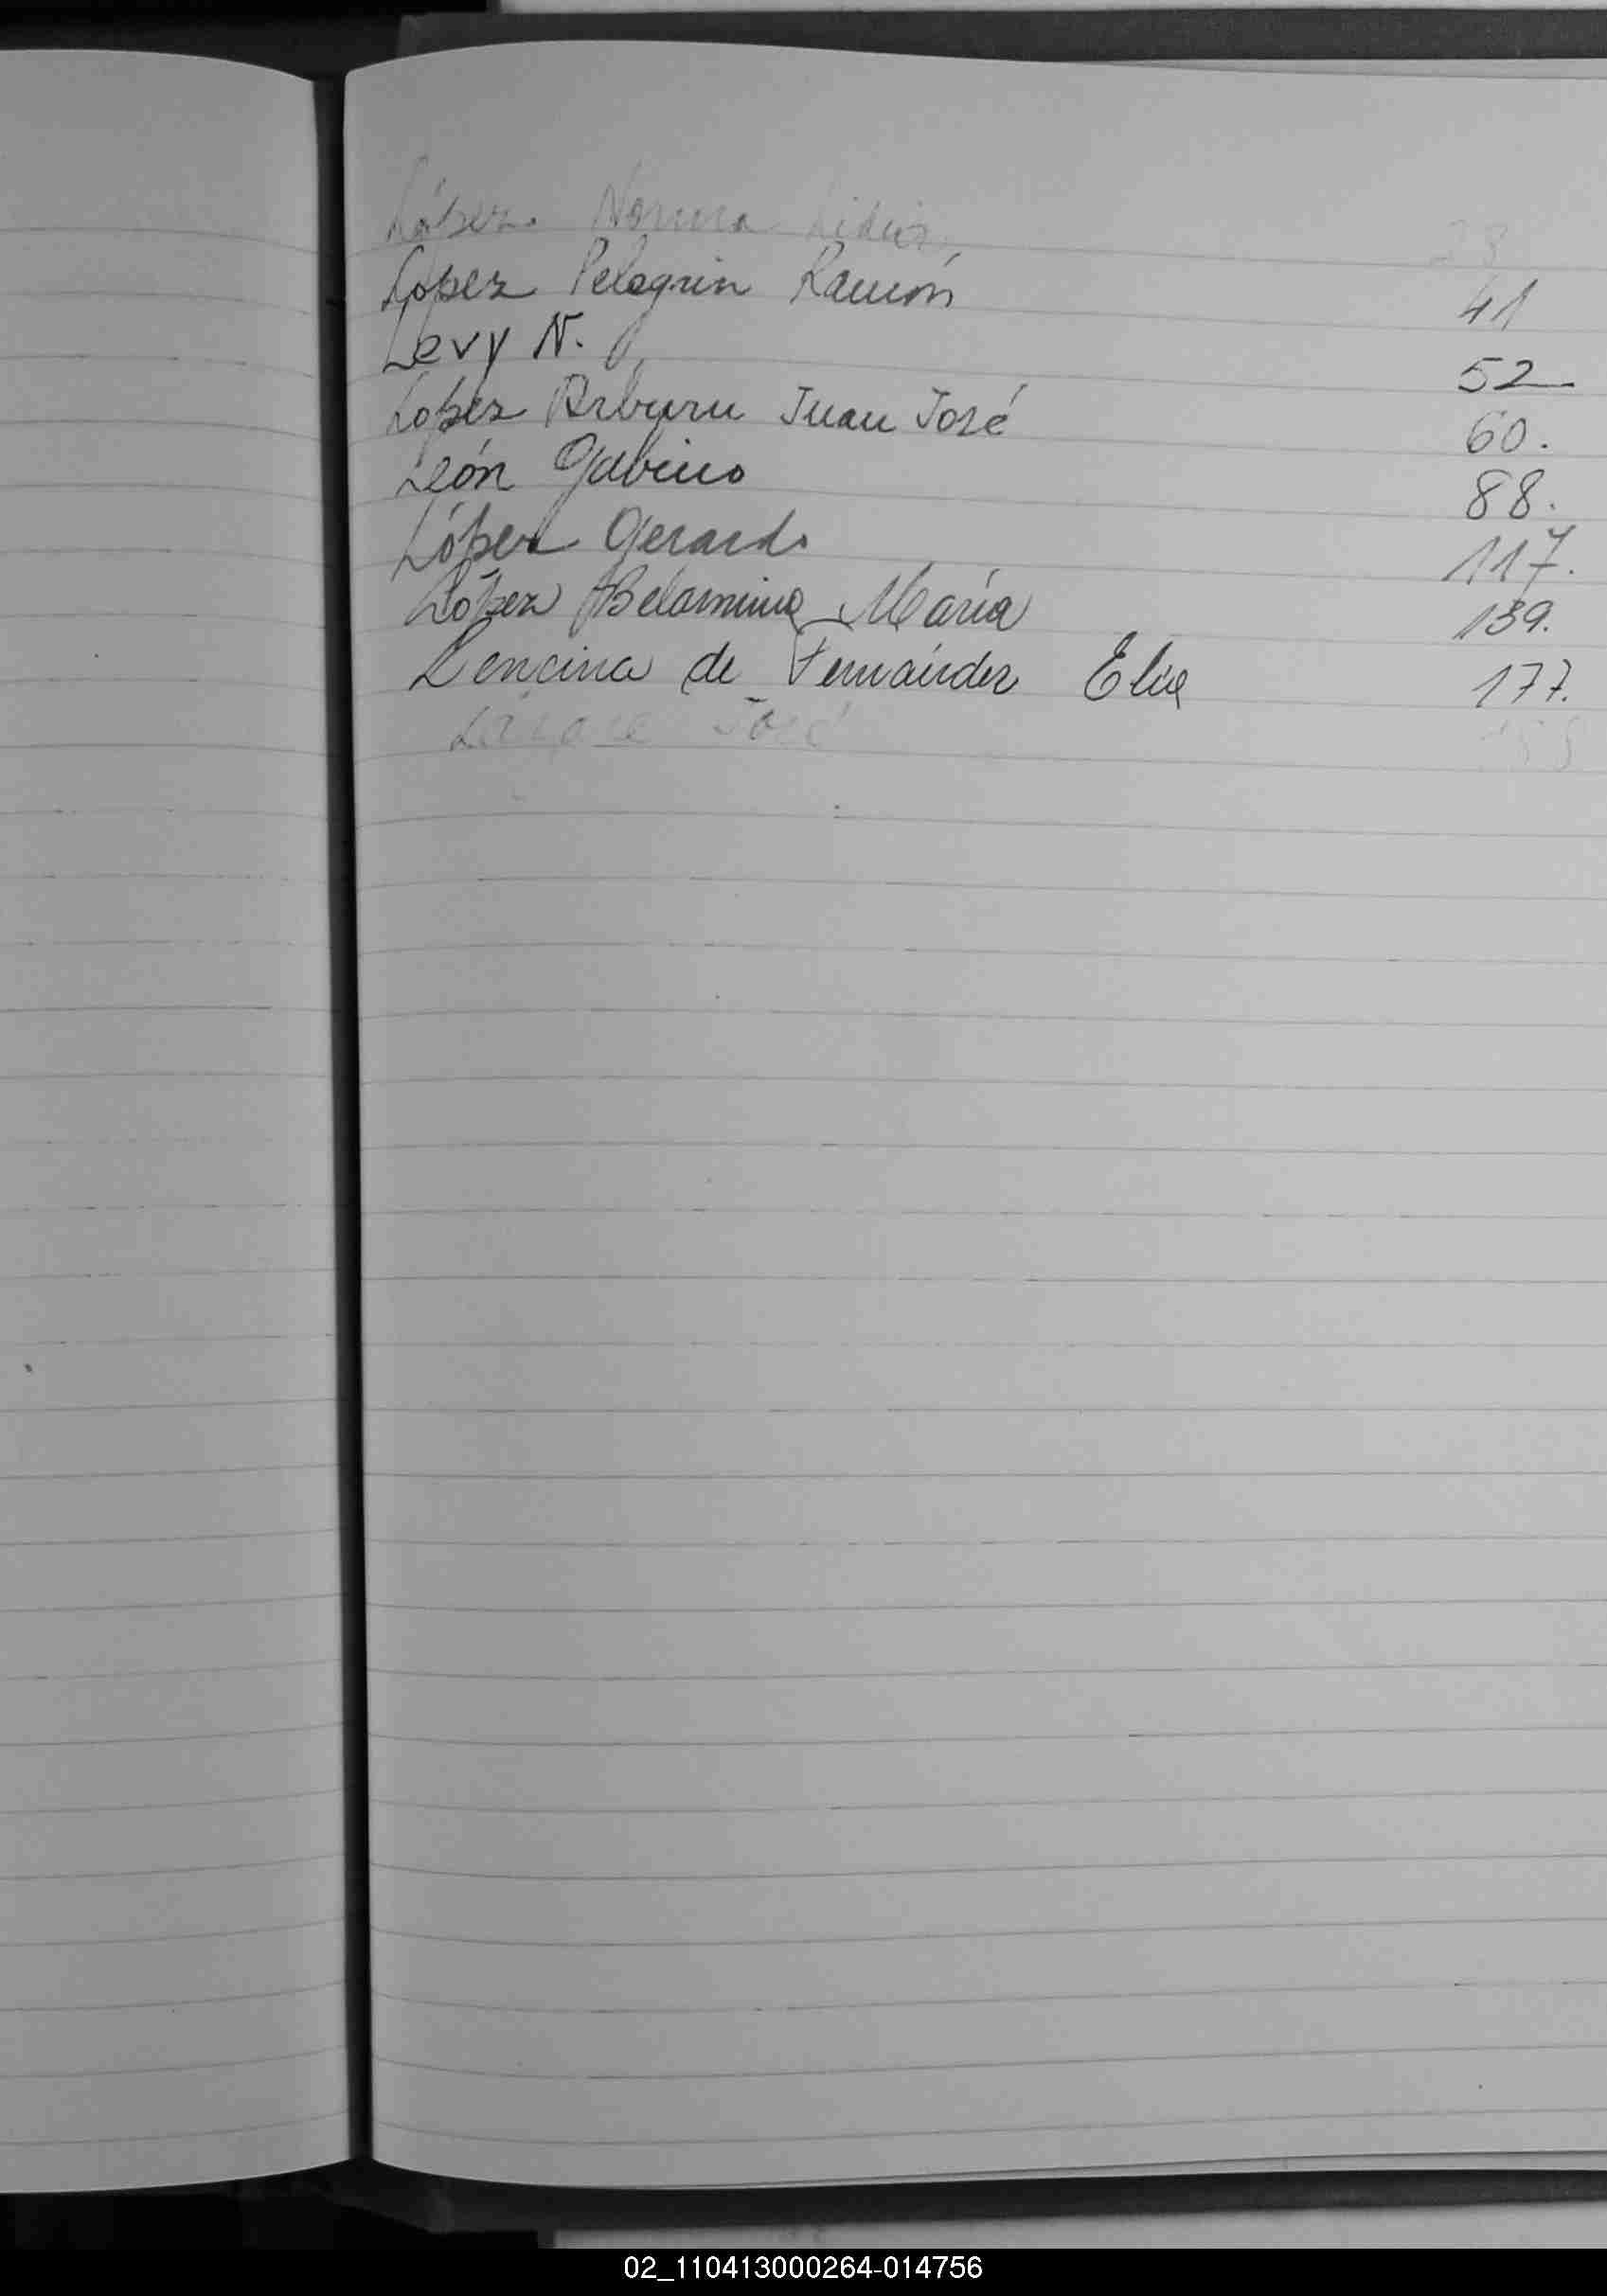 López Norma Lidia 28
López Pelegrin Ramón 41
Levy N. 52
López Arburu Juan José 60.
León Gabino 88.
López Gerardo 117.
López Belarmina María 139.
Lencina de Fernández Elva 177.
José
02_110413000264-014756